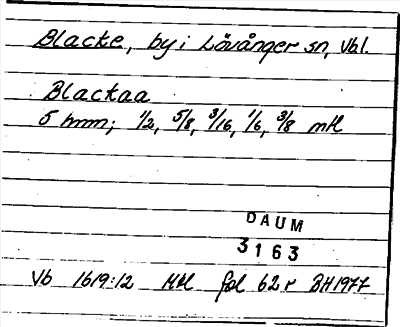 Blacke, by i Lövånger sn, Vbl.
Blackaa
5 hmm; 1/2, 5/8, 3/16, 1/6, 3/8 mtl
DAUM
3163
Vb 1619:12 Mtl fol 62 r BH1977